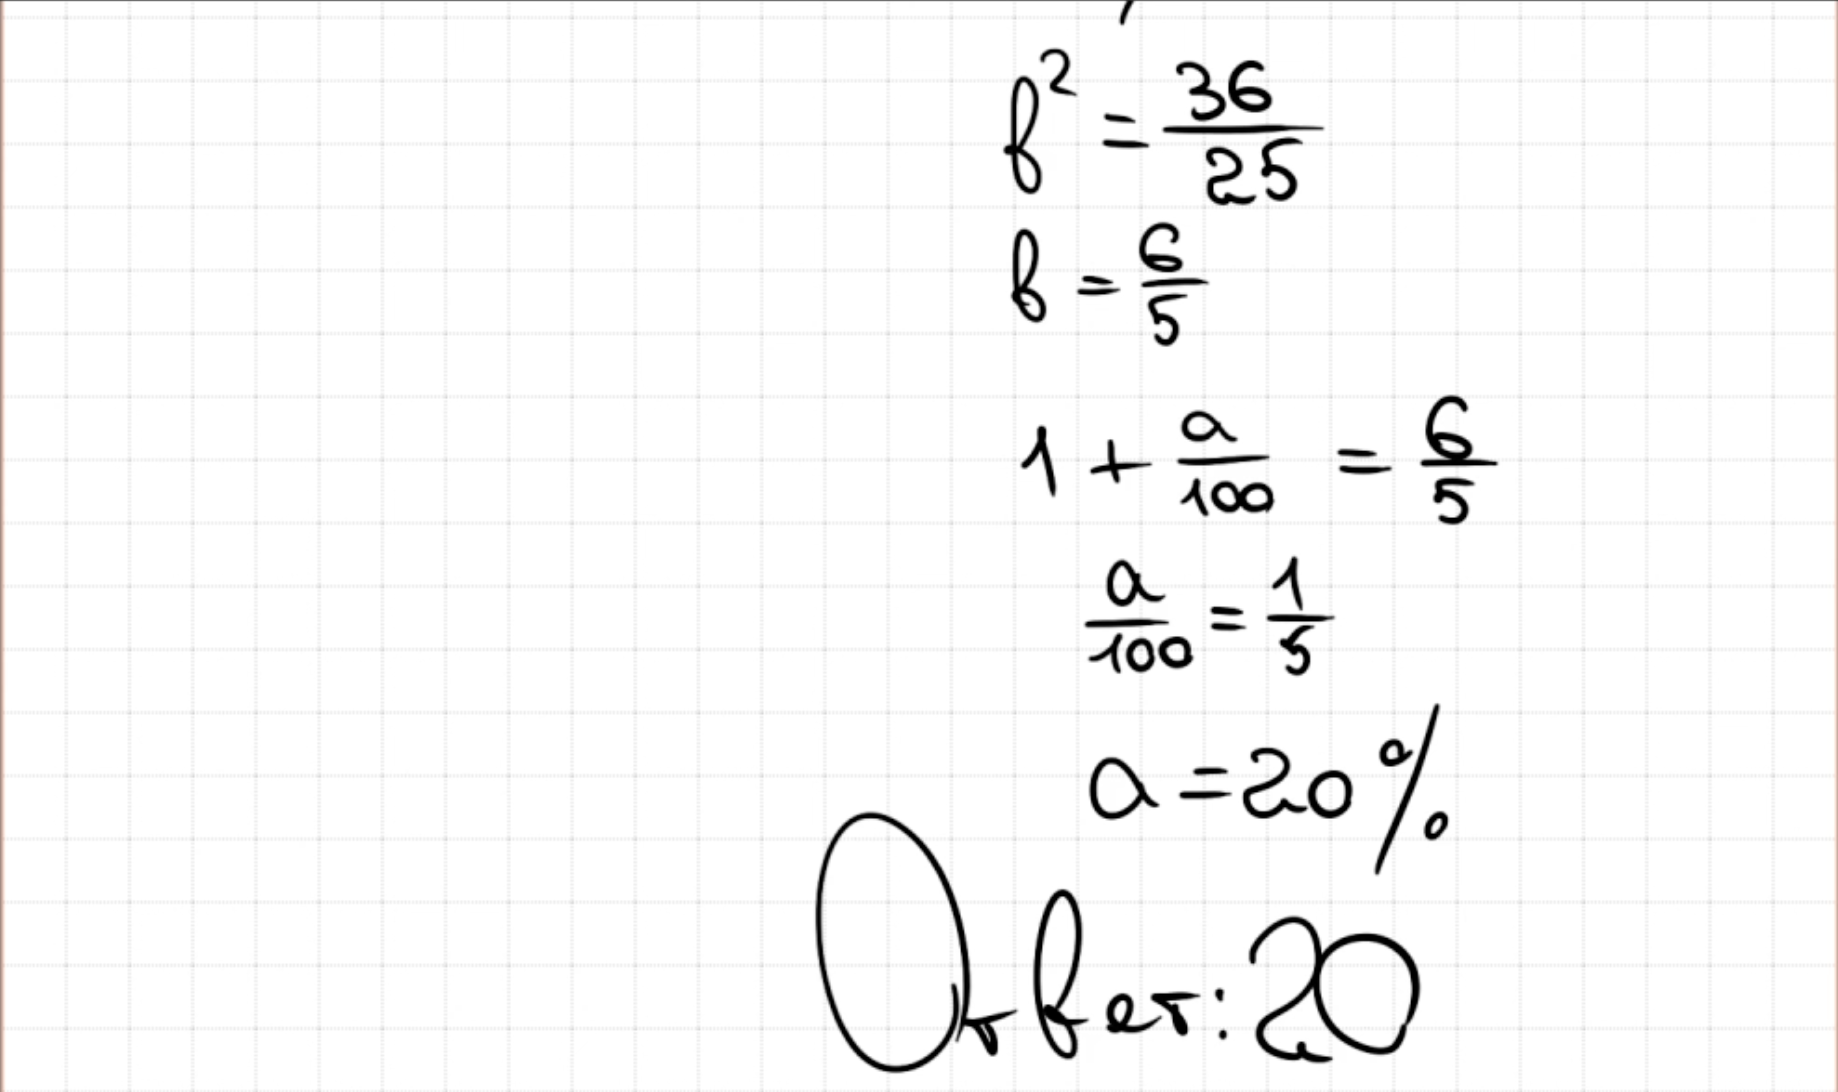 в² = 36/25
в = 6/5
1 + a/100 = 6/5
a/100 = 1/5
a = 20%
Ответ: 20